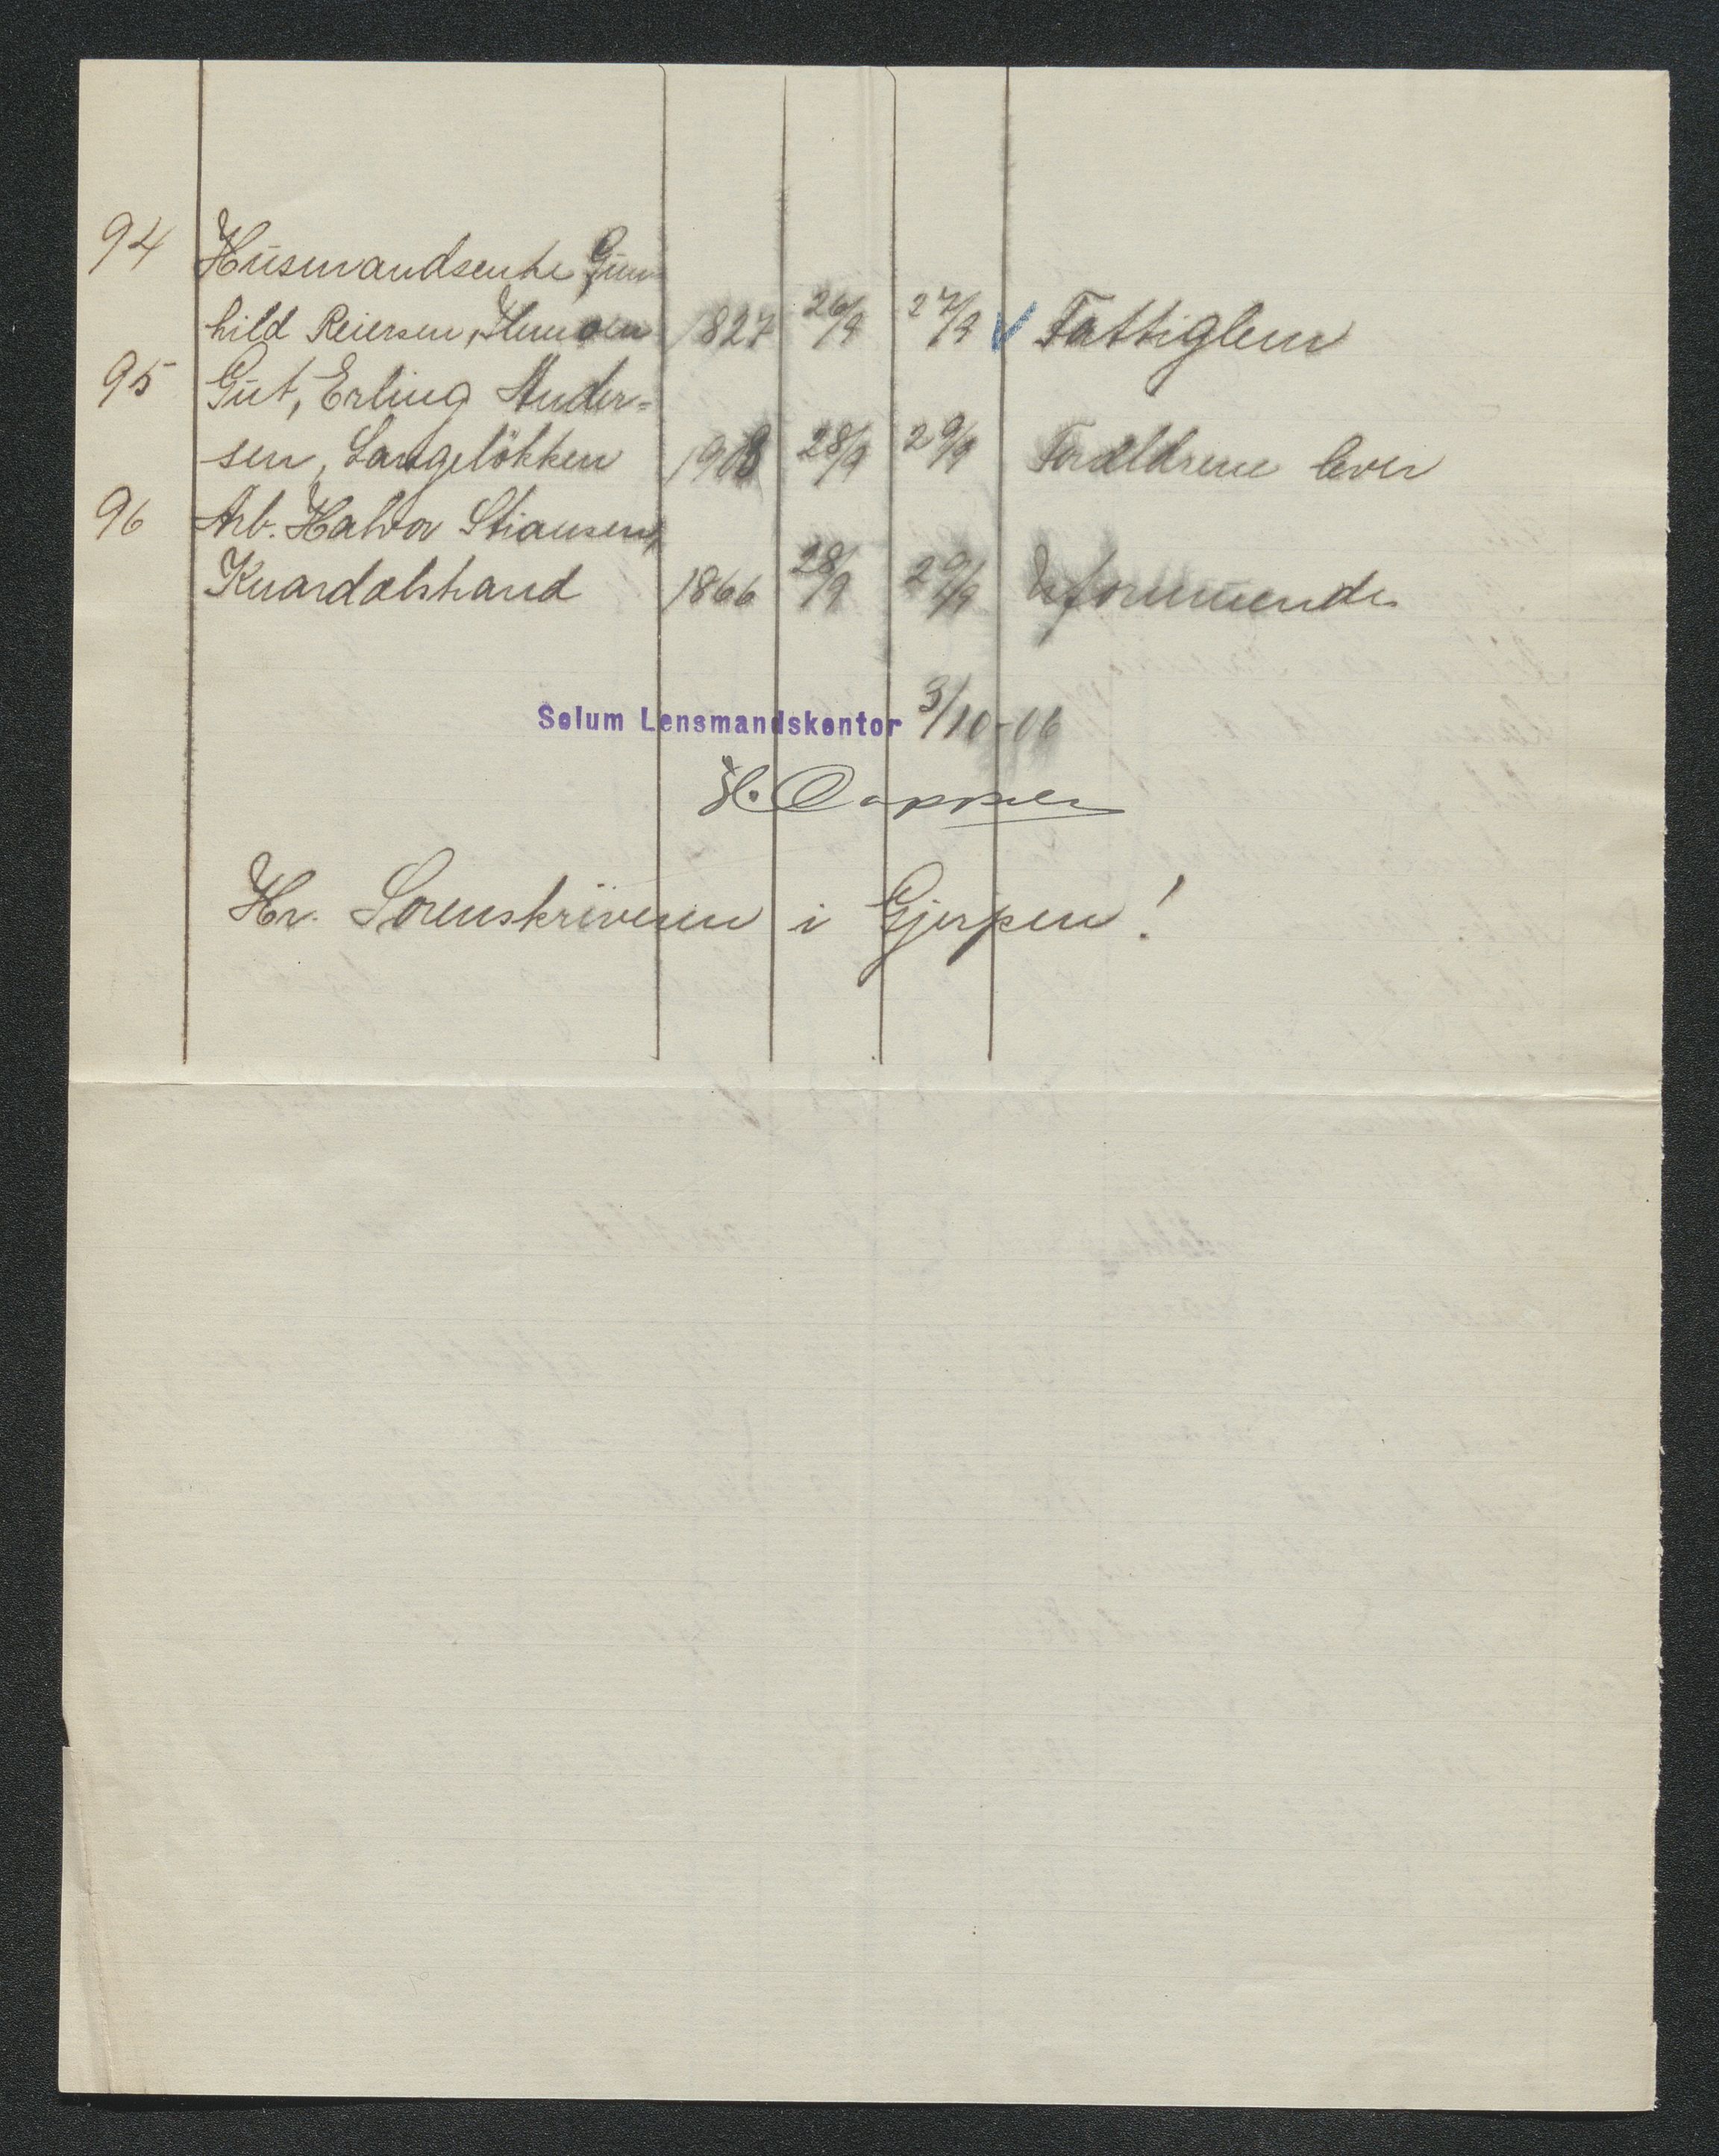 94 Husmandsenke Gun
hild Reiersen, 1827 26/9 27/9 V Fattiglem
95 Gut, Erling Ander=
sen, Langeløkken 190 28/9 29/9 Forældrene lever
96 Arb. Halvor Stiansen,
Knardalstrand 1866 28/9 29/9 Uformuende
Solum Lensmandskontor 3/10-06
H.
Hr. Sorenskriveren i Gjerpen!